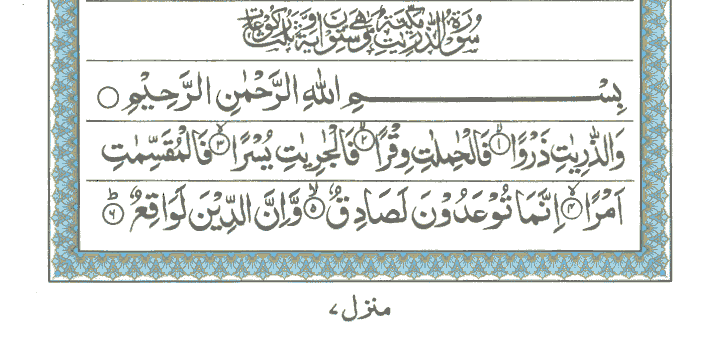 سُوْرَةُ الذّٰرِيٰتِ مَكِّيَّةٌ وَّهِيَ سِتُّوْنَ اٰيَةً وَّثَلٰثُ رُكُوْعَاتٍ
بِسْمِ اللّٰهِ الرَّحْمٰنِ الرَّحِيْمِ ○
وَالذّٰرِيٰتِ ذَرْوًا ۙ﴿۱﴾ فَالْحٰمِلٰتِ وِقْرًا ۙ﴿۲﴾ فَالْجٰرِيٰتِ يُسْرًا ۙ﴿۳﴾ فَالْمُقَسِّمٰتِ
اَمْرًا ۙ﴿۴﴾ اِنَّمَا تُوْعَدُوْنَ لَصَادِقٌ ۙ﴿۵﴾ وَّاِنَّ الدِّيْنَ لَوَاقِعٌ ؕ﴿۶﴾
منزل ۷